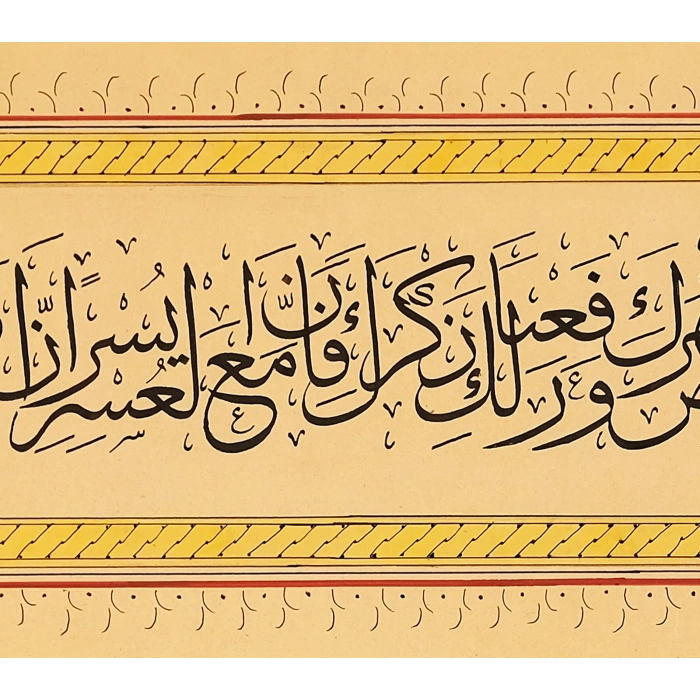 وَرَفَعْنَا لَكَ ذِكْرَكَ فَاِنَّ مَعَ الْعُسْرِ يُسْرًا اِنَّ